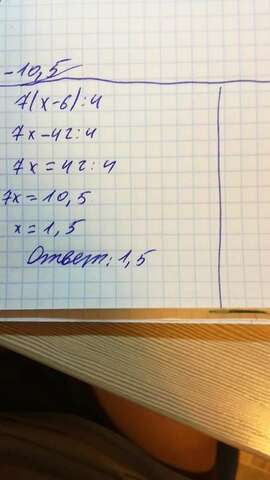 -10,5
7(x-6):4
7x-42:4
7x=42:4
7x=10,5
x=1,5
Ответ: 1,5